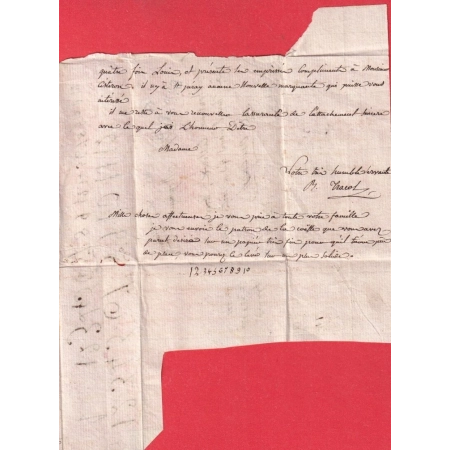 quatre fois Louis, et presente ses empressés Compliments à Monsieur
il n'y à St juray aucune Nouvelle marquante qui puisse vous
interessé
il me reste à vous renouveller l'assurance de l'attachement sincere
avec le quel jai L'honneur D'être
Madame
Votre très humble servante
Tracol
Mille choses affectueuse je vous prie à toute votre famille
je vous envoie le patron de la coiffe que vous avez
paru desirer sur un papier très fin pour qu'il tienne peu
de place vous pouvez le lever sur un peu solide.
1 2 3 4 5 6 7 8 9 10